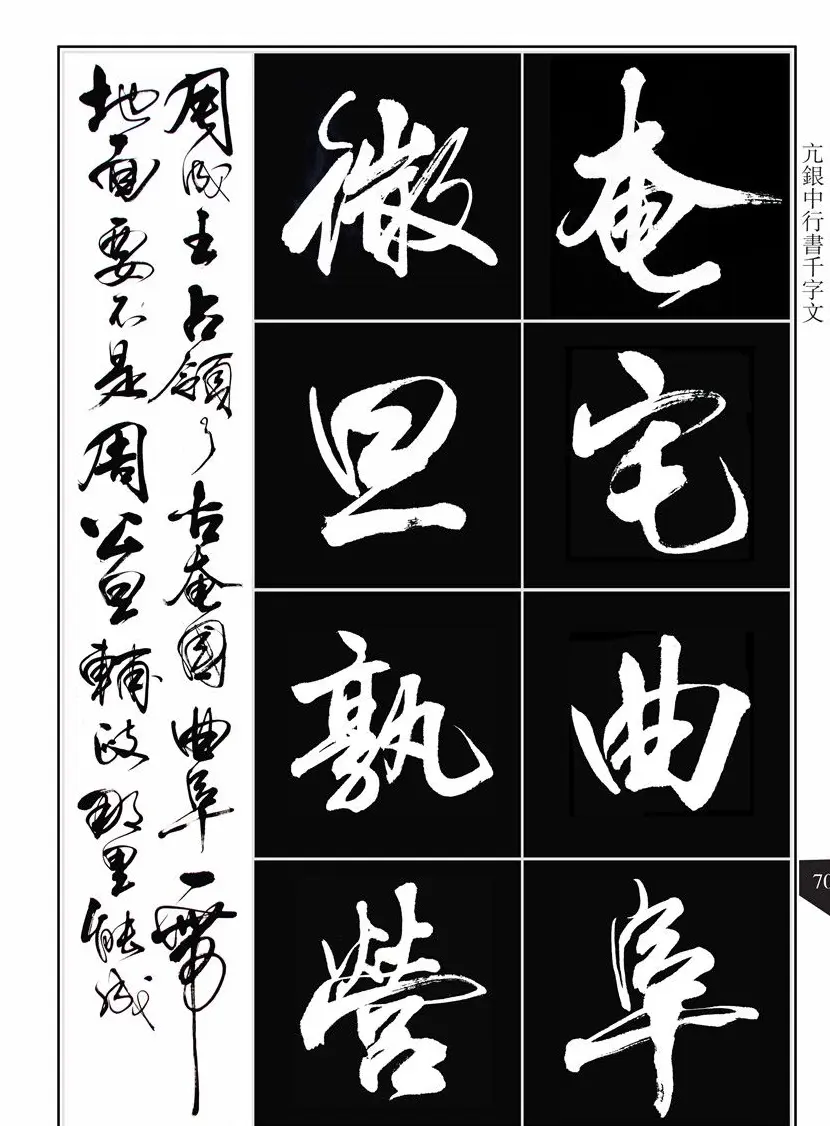 亢銀中行書千字文
奄宅曲阜
微旦孰營
周成王占領了古奄國曲阜一帶
地面要不是周公旦輔政那里能成
70